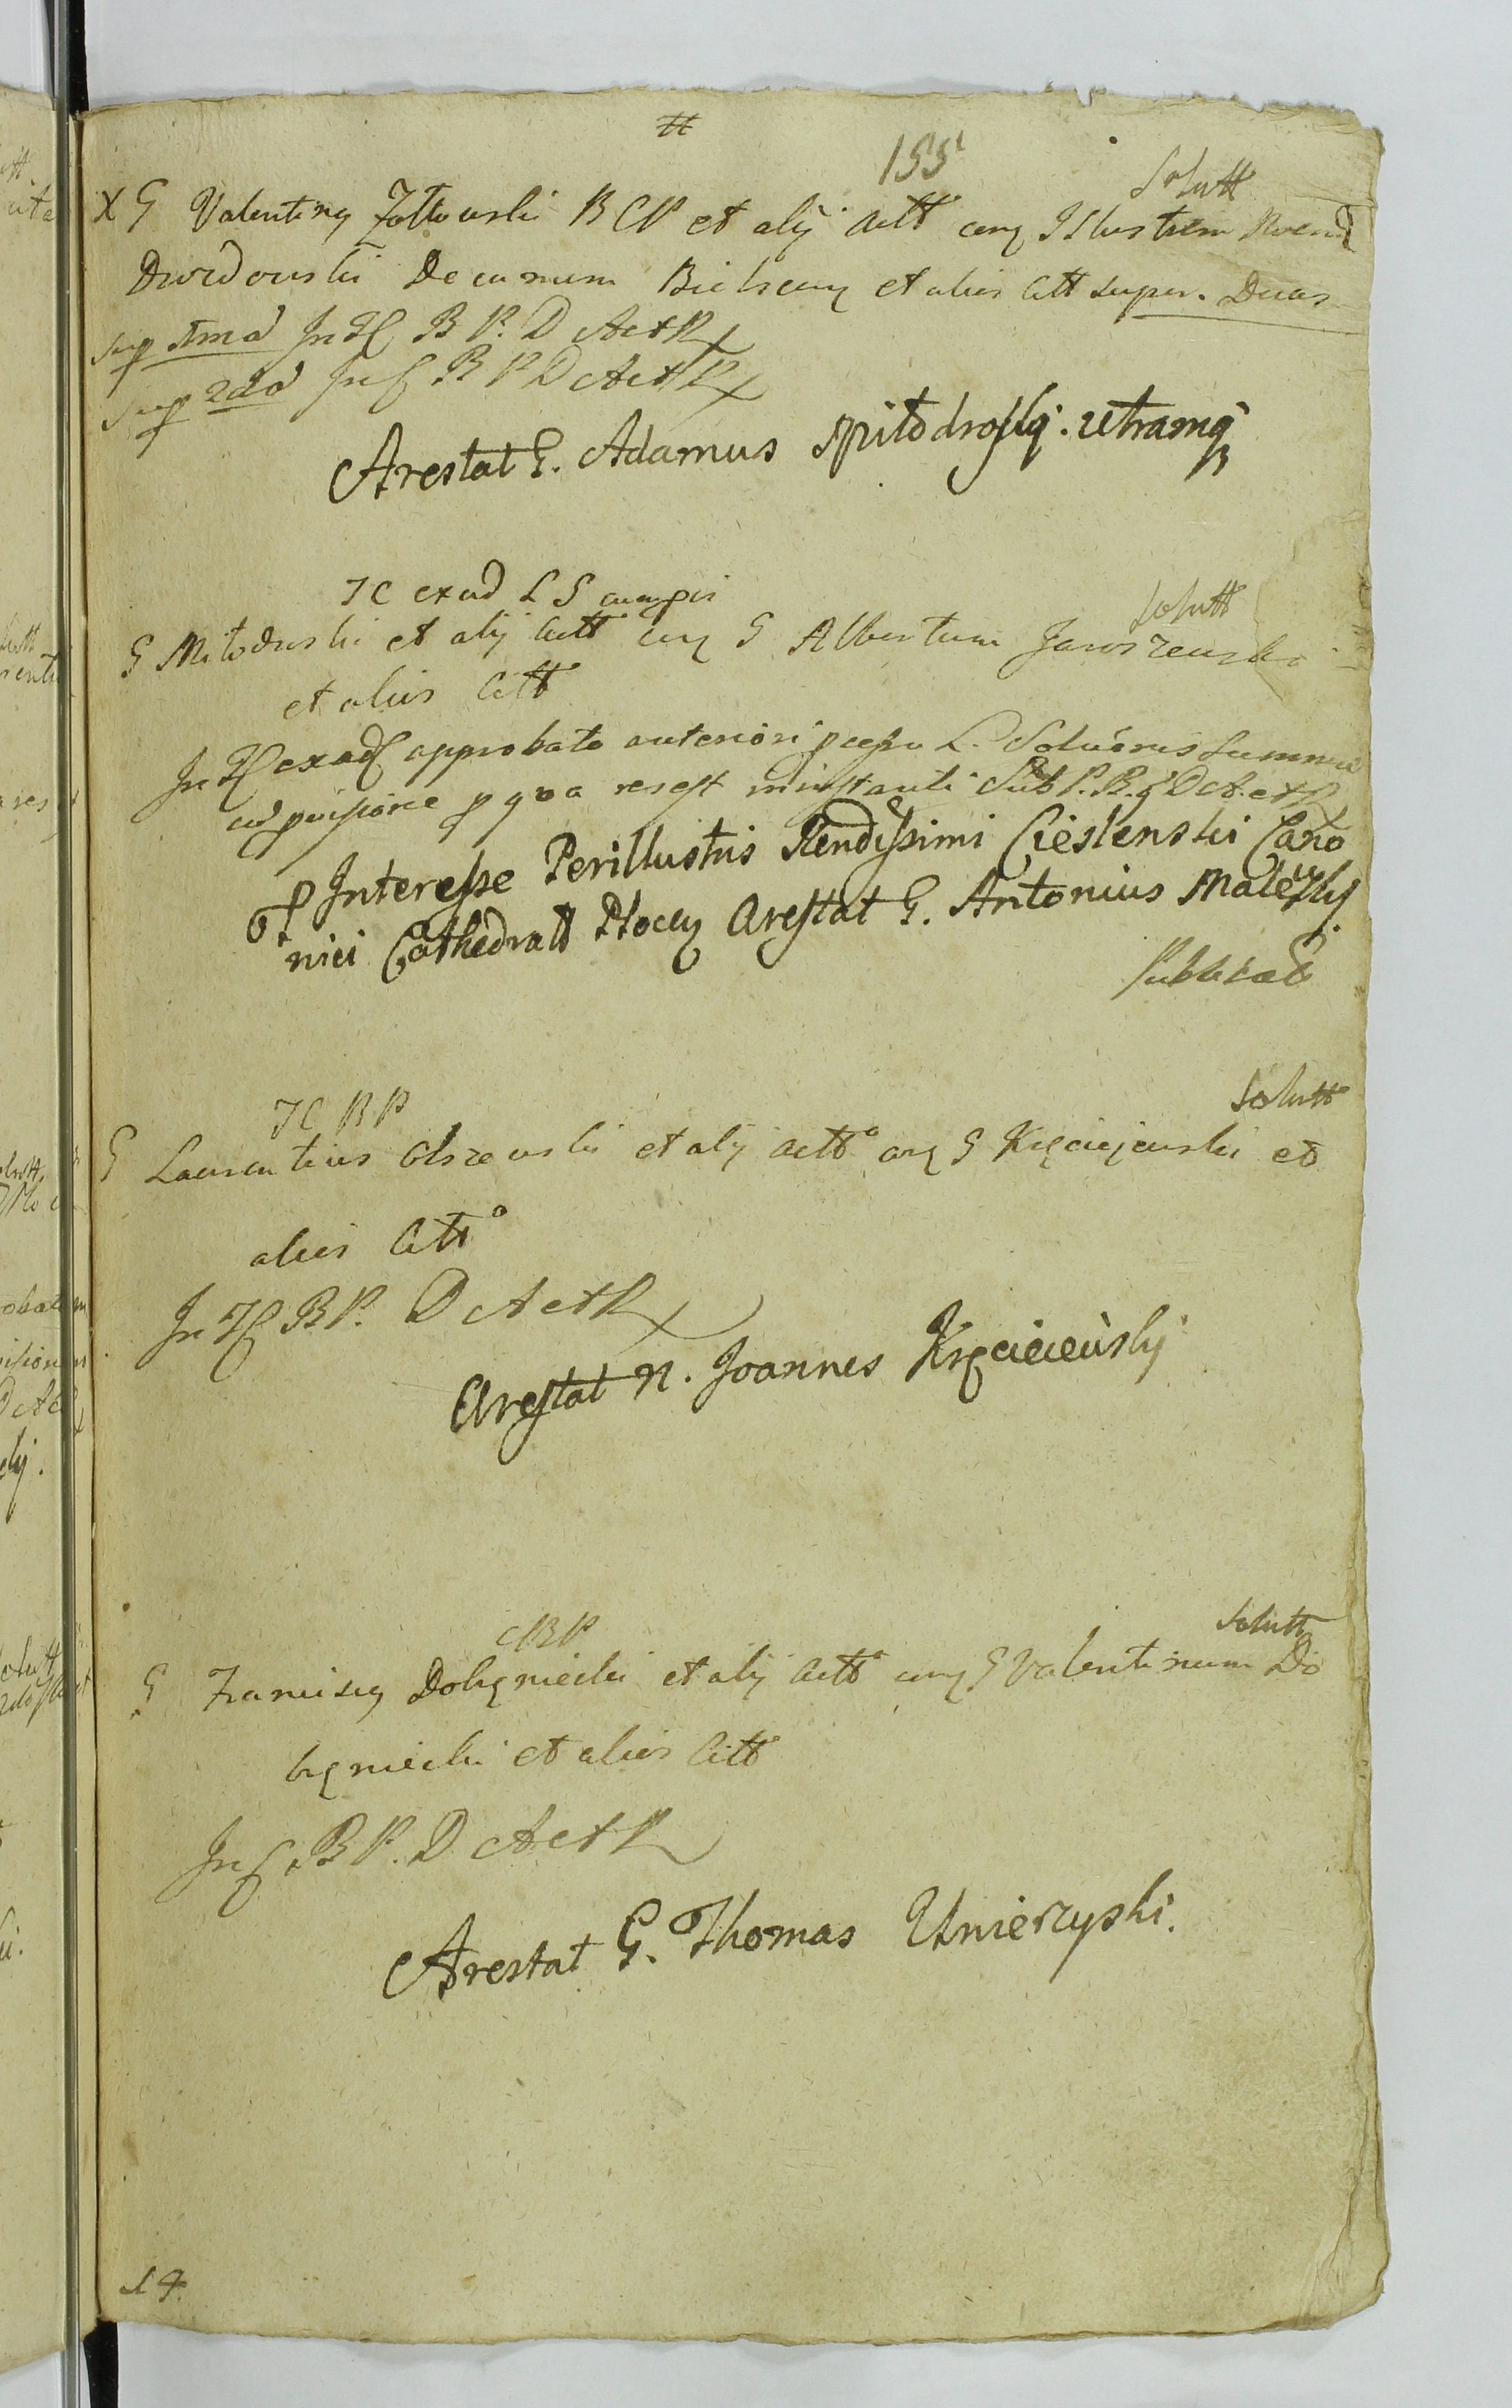 tt
155
Solutt
X G Valentinq Zołtowski B C P et alij Actt cumq Illustrem Rvend
Drozdowski Decanum Bielscenq et alios Citt super. Duas
sup 1mā In H B P. D Act R
sup 2dā In f B P D Act R
Arestat G. Adamus Spiłodroski. utramq
IC exad L S
solutt
G Młodzski et alij Actt cum G Albertum Jaroszewski
et alios Citt
In H exad approbato anteriori L. Solutionis summa
sub P. R. q D A. et R
Interesse Perillustris Rendissimi Cieslenski Cano
nici Cathedratt Płocen Arestat G. Antonius Małeski
Publicat
IC B P
Solutt
G Laurentius Olszewski et alij actt cum G Kięciejewski et
alios Citt
In H B P. D Act R
Arestat N. Joannes Kięcieiewskij
C B P
Solutt
G Franciscq Dobęniecki et alij Actt cum G Valentinum Do
bęniecki et alios Citt
In f B P. D Act R
Arestat G. Thomas Unierzyski.
14.